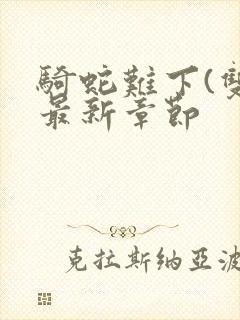 騎蛇難下(雙
最新章節
克拉斯納亞波